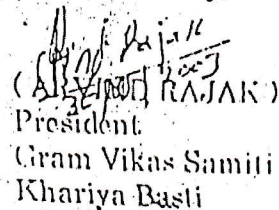 RAJAK )
President
Gram Vikas Samiti
Khariya Basti